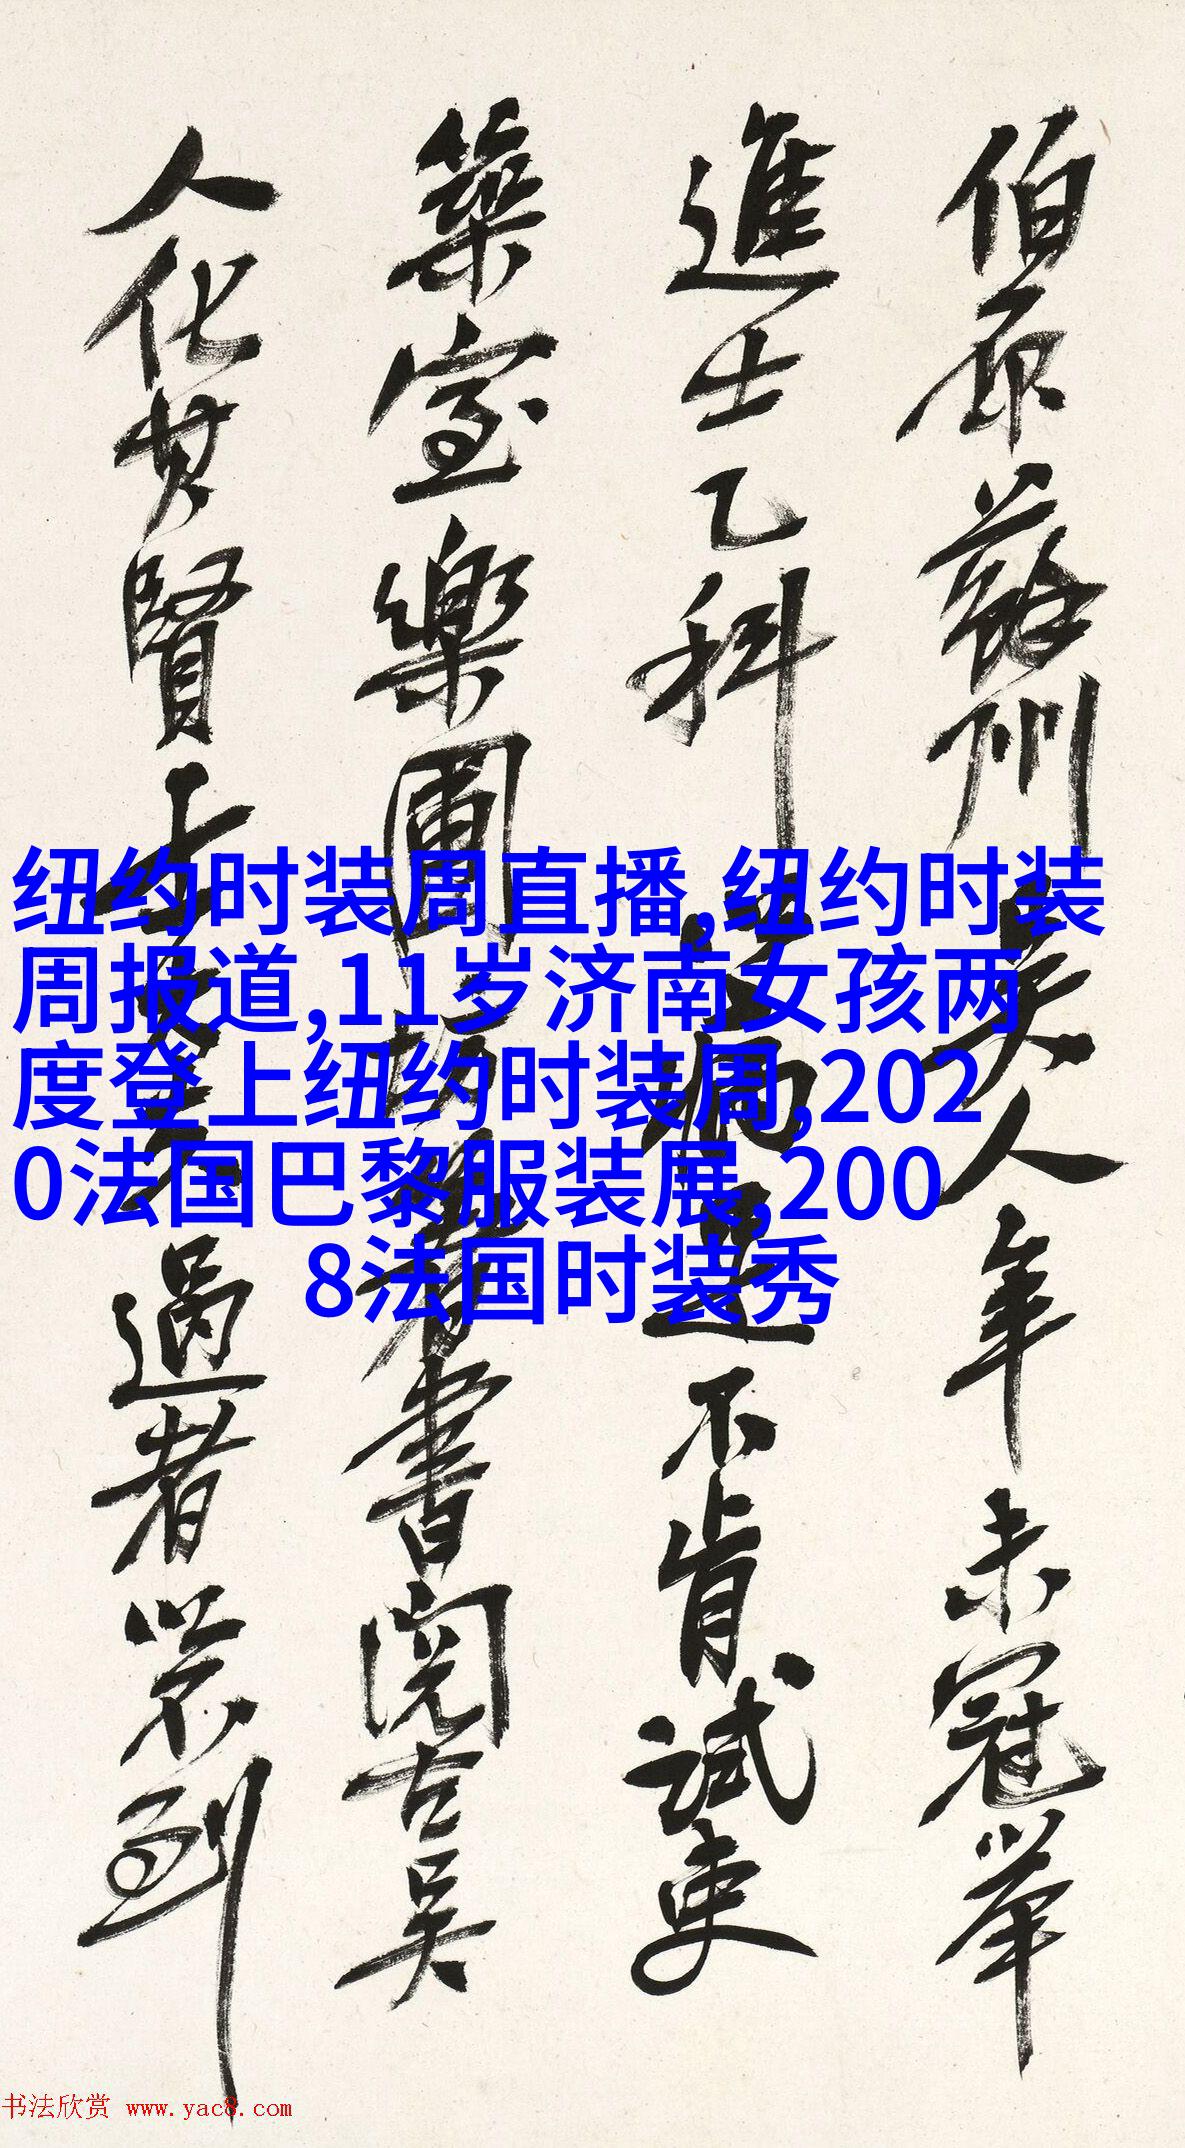 伯原蘇州吳人年未冠舉
進士乙科以病足不肯試吏
築室樂圃坊著書閱古吳
人化其賢士大夫過者以不到
纽约时装周直播,纽约时装
周报道,11岁济南女孩两
度登上纽约时装周,202
0法国巴黎服装展,200
8法国时装秀
书法欣赏 www.yac8.com